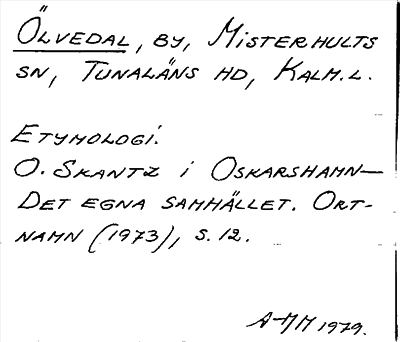 Ölvedal, by, Misterhults
sn, Tunaläns hd, Kalm.l.
Etymologi.
O. Skantz i Oskarshamn—
Det egna samhället. Ort-
namn (1973), s. 12.
A-MM 1979.